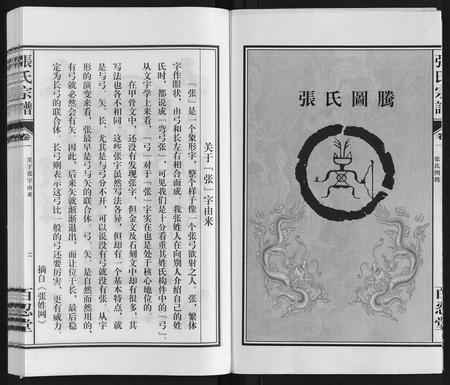 張氏宗譜
卷一
張氏图腾
百忍堂
張氏圖騰
关于「张」字由来
「张」是一个象形字，整个样子像一个张弓欲射之人，张，繁体
字作眼状，由弓和长左右相合而成。我张姓人在向别人介绍自己的姓
氏时，都说成「弯弓张」，可见我们是十分看重其姓氏构件中的「弓」。
从文字学上来看，「弓」对于「张」字实在也是处于核心地位的。
在甲骨文中，还没有发现张字，但金文及石刻文中却有很多，其
写法也各不相同。这些张字虽然写法各异，但却有一个基本特点，就
是与弓、矢、长，尤其是与弓分不开，可以说没有弓就没有张。从字
形的演变来看，张最早是弓与矢的联合体。弓、矢，是自然而然用的，
有弓就必然会有矢。因此，后来矢就渐渐退出，而让位于长，最后稳
定为长弓的联合体。长弓则表示这弓比一般的弓还要厉害，更有威力。
摘自《张姓网》
張氏宗譜
卷一
关于张字由来
二
百忍堂